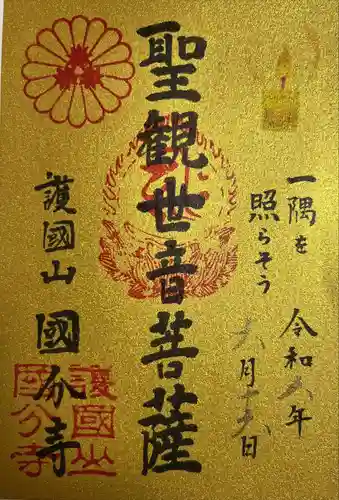 一隅を
照らそう
令和六年
六月十六日
聖観世音菩薩
護國山
國分寺
護國山
國分寺